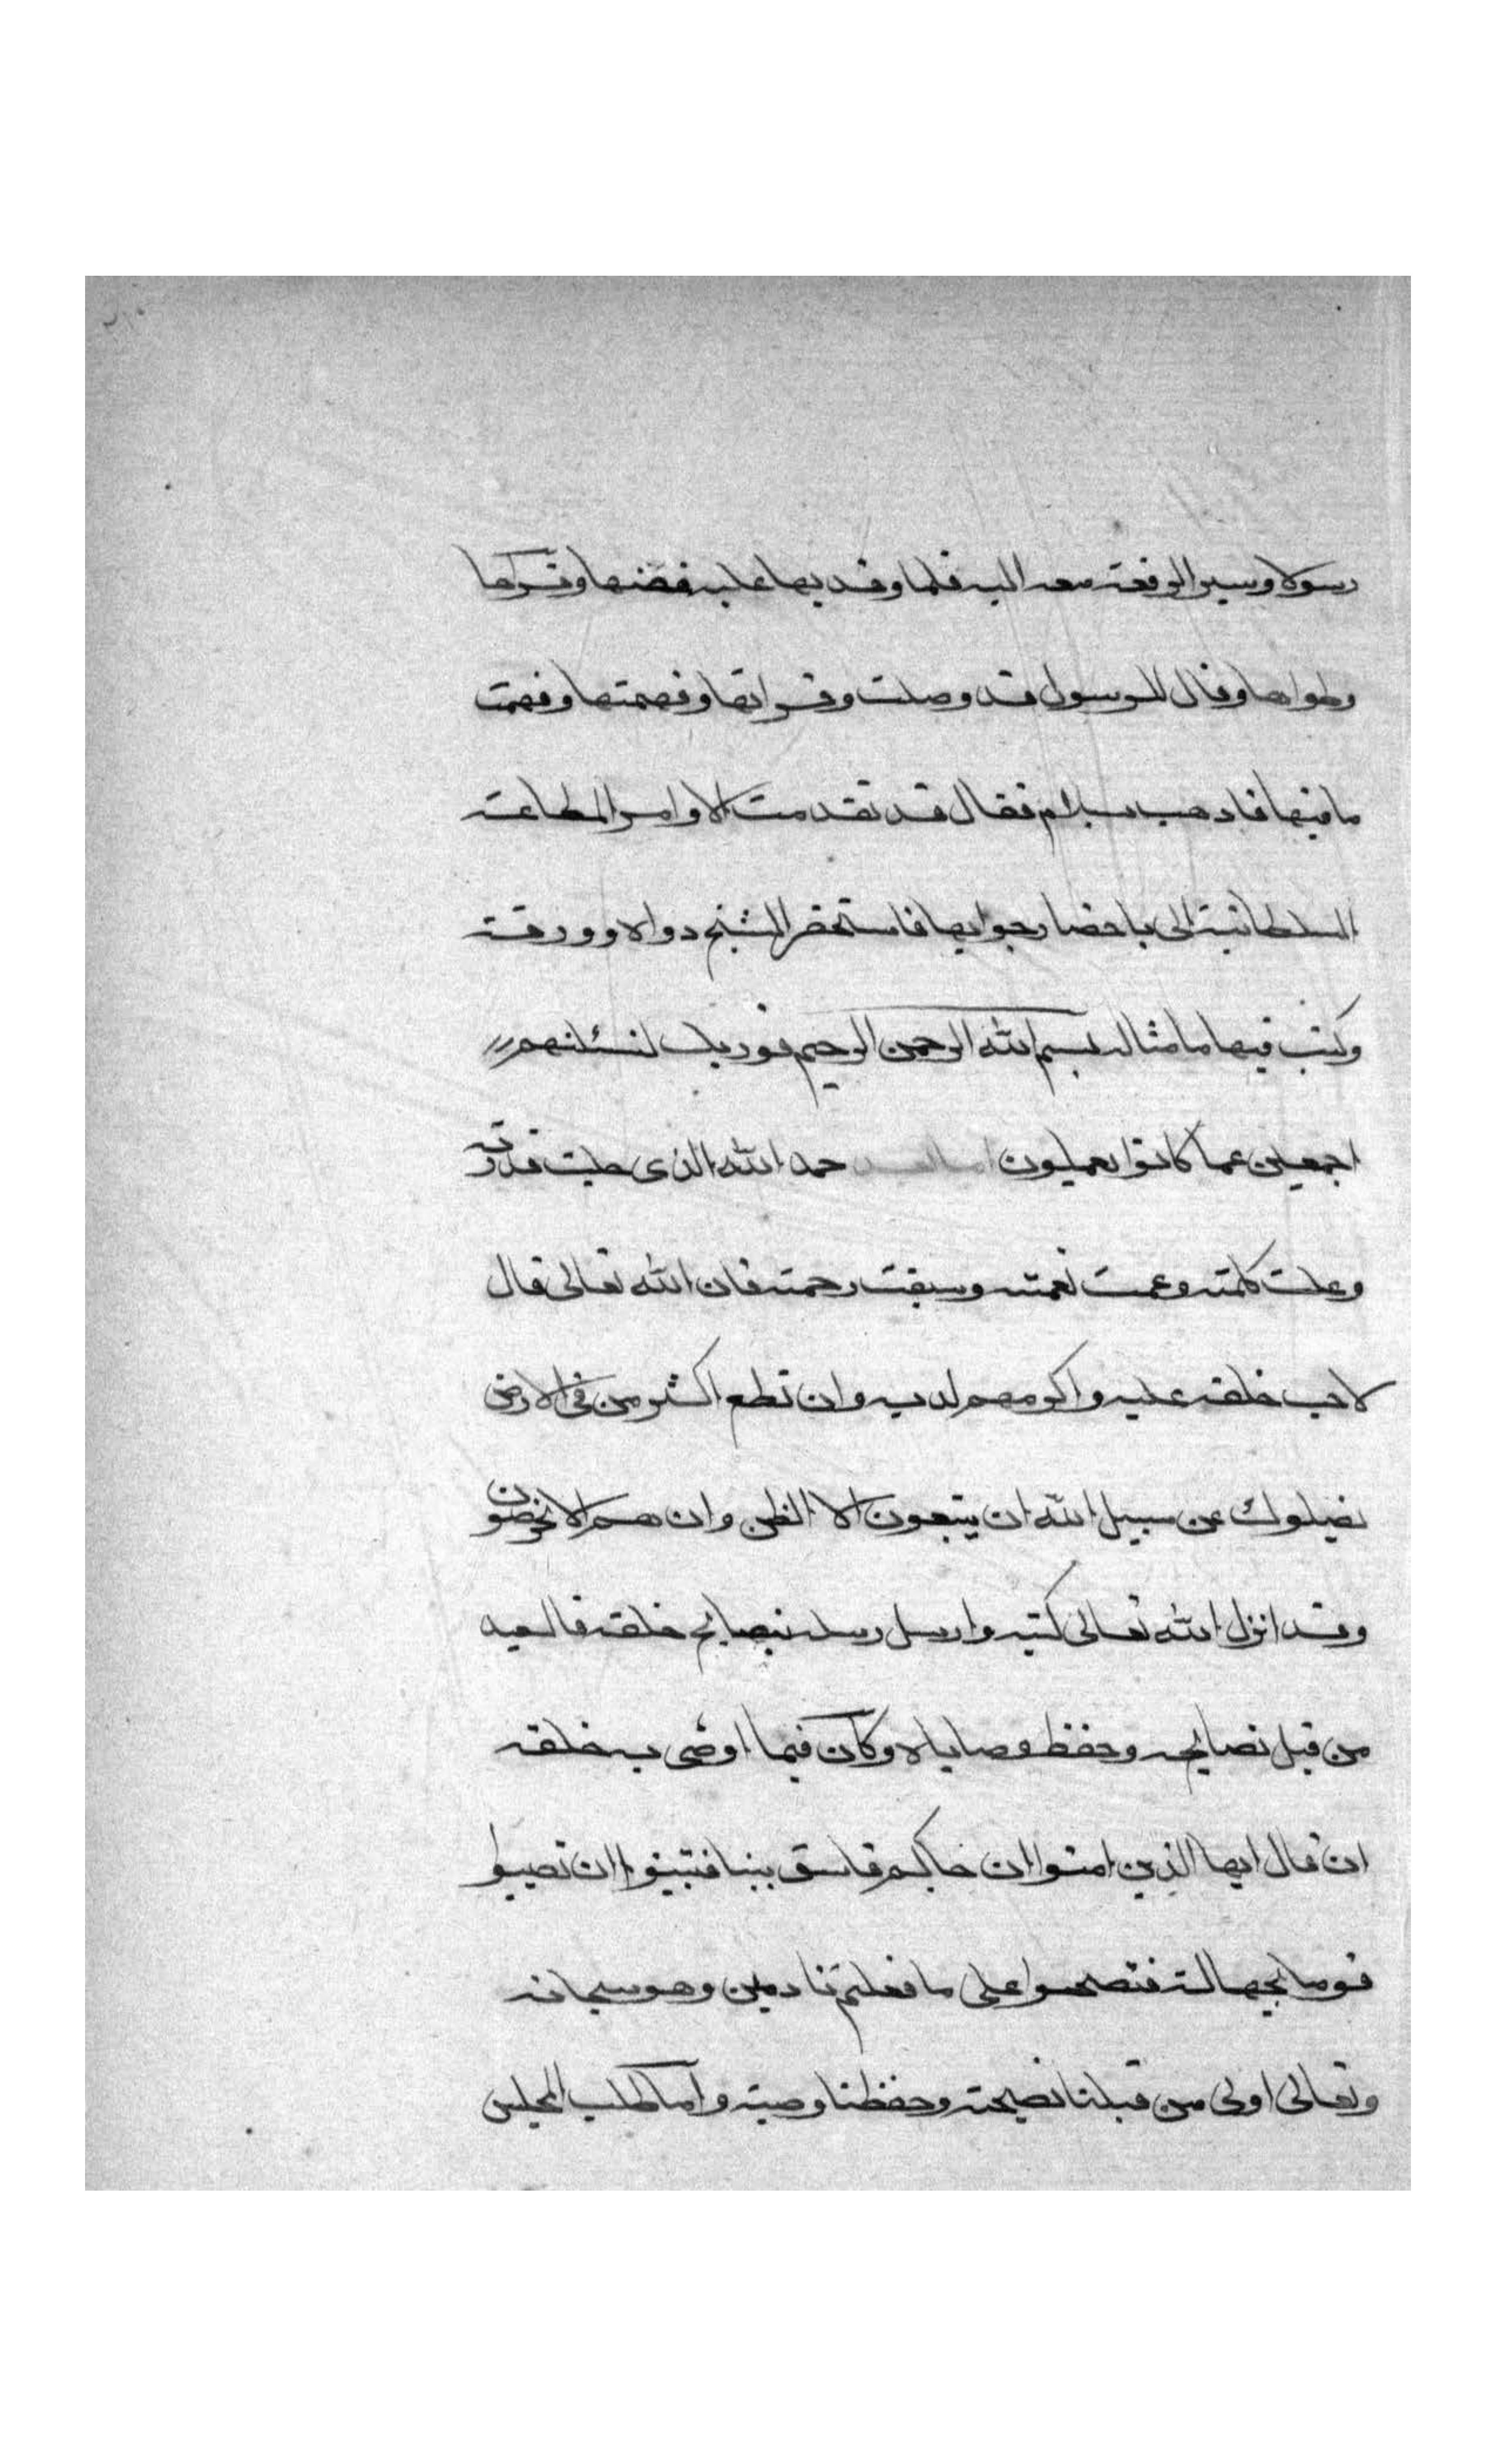 رسولا وسير الرقعة معه اليه فلما وفد بها عليه فضها وقراها
وطواها وقال للرسول قد وصلت وقراتها وفهمتها وفهمت
ما فيها فادهب بسلام فقال قد تقدمت الاوامر المطاعة
السلطانية الى باحضار جوابها فاستحضر الشيخ دواة وورقة
وكتب فيها ما مثاله بسم الله الرحمن الرحيم فوربك لنسئلنهم
اجمعين عما كانوا يعملون اما بعد حمد الله الذى جلت قدرته
وعلت كلمته وعمت نعمته وسبقت رحمته فان الله تعالى قال
لاحب خلقه عليه واكرمهم لديه وان تطع اكثر من فى الارض
يضلوك عن سبيل الله ان يتبعون الا الظن وان هم الا يخرصون
وقد انزل الله تعالى كتبه وارسل رسله بنصايح خلقه فالسعيد
من قبل نصايحه وحفظ وصاياه وكان فيما اوصى به خلقه
ان قال ايها الذين امنوا ان جاكم فاسق بنبا فتبينوا ان تصيبوا
قوما بجهالة فتصبحوا على ما فعلتم نادمين وهو سبحانه
وتعالى اولى من قبلنا نصيحته وحفظنا وصيته واما طلب المجلس